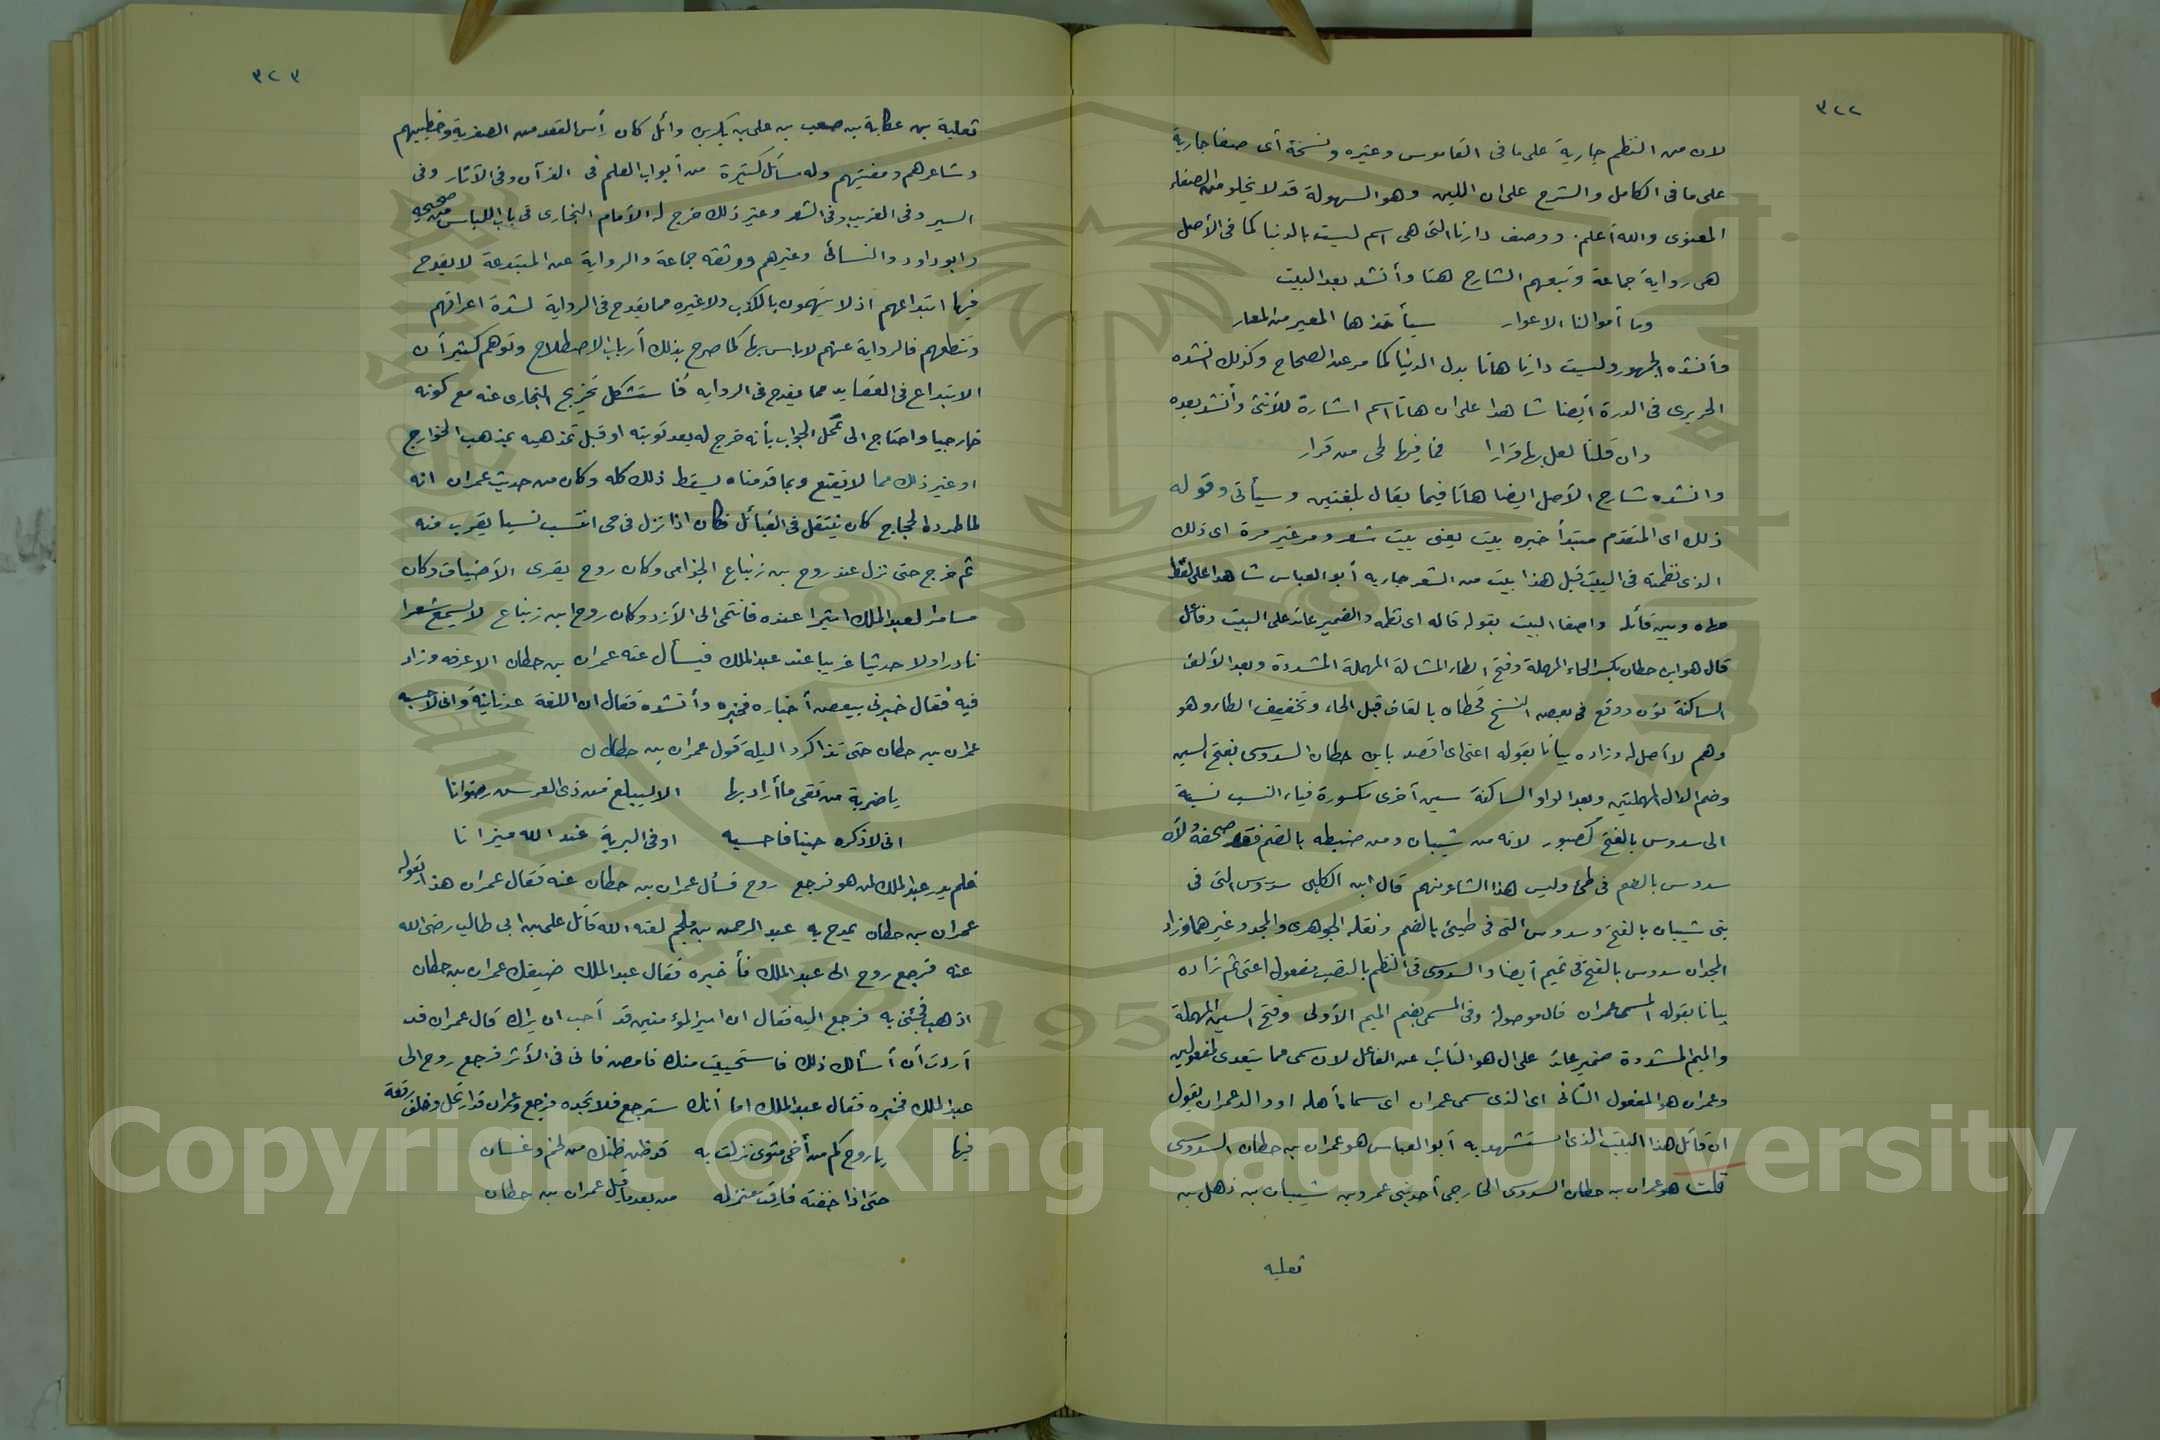 ٣٢٢
لان من النظم جارية على ما فى القاموس وغيره ونسخة أى صفا جارية
على ما فى الكامل والشرح على ان اللين وهو السهولة قد لا يخلو من الصفاء
المعنوى والله أعلم. ووصف دارنا التى هى اسم ليست بالدنيا كما فى الأصل
هى رواية جماعة وتبعهم الشارح هنا وأنشد بعد البيت
وما أموالنا الا عوار سيأخذها المعير من المعار
وأنشده الجمهور وليست دارنا هاتا بدل الدنيا كما مر عن الصحاح وكذلك انشده
الحريرى فى الدرة أيضا شاهدا على ان هاتا اسم اشارة للأنثى وأنشد بعده
وان قلنا لعل بها قرارا فما فيها لحى من قرار
وانشده شارح الأصل ايضا هاتا فيما يقال بلغتين وسيأتى وقوله
ذلك اى المتقدم مبتدأ خبره بيت يعنى بيت شعر ومر غير مرة اى ذلك
الذى نظمته فى البيت قبل هذا بيت من الشعر جاء به أبو العباس شاهدا على لفظ
مهاه وبين قائله واصفا البيت بقوله قاله اى نظمه والضمير عائد على البيت وفاعل
قال هو ابن حطان بكسر الحاء المهملة وفتح الطاء المشالة المهملة المشددة وبعد الألف
الساكنة نون ووقع فى بعض النسخ قحطان بالقاف قبل الحاء وتخفيف الطاء وهو
وهم لا أصل له وزاده بيانا بقوله اعنى اى اقصد بابن حطان السدوسى بفتح السين
وضم الدال المهملتين وبعد الواو الساكنة سين أخرى مكسورة فياء النسب نسبة
الى سدوس بالفتح كصبور لانه من شيبان ومن ضبطه بالضم فقد صحفه لأن
سدوس بالضم فى طئ وليس هذا الشاعر منهم قال ابن الكلبى سدوس التى فى
بنى شيبان بالفتح وسدوس التى فى طيئ بالضم ونقله الجوهرى والمجد وغيرهما وزاد
المجد ان سدوس بالفتح فى تميم أيضا والسدوسى فى النظم بالنصب مفعول اعنى ثم زاده
بيانا بقوله المسمى عمران فال موصولة وفى المسمى بضم الميم الأولى وفتح السين المهملة
والميم المشددة ضمير عائد على ال هو النائب عن الفاعل لان سمى مما يتعدى لمفعولين
وعمران هو المفعول الثانى اى الذى سمى عمران اى سماه أهله او والد عمران يقول
ان قائل هذا البيت الذى استشهد به أبو العباس هو عمران بن حطان السدوسى
قلت هو عمران بن حطان السدوسى الخارجى أحد بنى عمرو بن شيبان بن ذهل بن
ثعلبه
٣٢٣
ثعلبة بن عكابة بن صعب بن على بن بكر بن وائل كان رأس القعد من الصفرية وخطيبهم
وشاعرهم ومفتيهم وله مسائل كثيرة من أبواب العلم فى القرآن وفى الآثار وفى
السير وفى الغريب وفى الشعر وغير ذلك خرج له الأمام البخارى فى باب اللباس من صحيحه
وابو داود والنسائى وغيرهم ووثقه جماعة والرواية عن المبتدعة لا يقدح
فيها ابتداعهم اذ لا يتهمون بالكذب ولا غيره مما يقدح فى الرواية لشدة اعراقهم
وتنطعهم فالرواية عنهم لا بأس بها كما صرح بذلك أرباب الاصطلاح وتوهم كثير أن
الابتداع فى العقايد مما يقدح فى الروايه فاستشكل تخريج البخارى عنه مع كونه
خارجيا واحتاج الى تمحل الجواب بأنه خرج له بعد توبته او قبل تمذهبه بمذهب الخوارج
او غير ذلك مما لا يقنع وبما قدمناه يسقط ذلك كله وكان من حديث عمران انه
لما طرده الحجاج كان ينتقل فى القبائل فكان اذا نزل فى حى انتسب نسبا يقرب منه
ثم خرج حتى نزل عند روح بن زنباع الجذامى وكان روح يقرى الأضياف وكان
مسامرا لعبد الملك اثيرا عنده فانتمى الى الأزد وكان روح ابن زنباع لا يسمع شعرا
نادرا ولا حديثا غريبا عند عبد الملك فيسأل عنه عمران بن حطان الا عرفه وزاد
فيه فقال خبرنى ببعض أخباره فخبره وأنشده فقال ان اللغة عدنانية وانى لاحسبه
عمران بن حطان حتى تذاكروا ليلة قول عمران بن حطان
ياضربة من تقى ما أراد بها الا ليبلغ من ذى العرش رضوانا
انى لاذكره حينا فاحسبه اوفى البرية عند الله ميزانا
فلم يدر عبد الملك لمن هو فرجع روح فسأل عمران بن حطان عنه فقال عمران هذا يقوله
عمران بن حطان يمدح به عبد الرحمن بن ملجم لعنه الله قاتل على بن ابى طالب رضى الله
عنه فرجع روح الى عبد الملك فأخبره فقال عبد الملك ضيفك عمران بن حطان
اذهب فجئنى به فرجع اليه فقال ان امير المؤمنين قد أحب ان يراك قال عمران قد
أردت أن أسألك ذلك فاستحييت منك فامض فانى فى الأثر فرجع روح الى
عبد الملك فخبره فقال عبد الملك اما أنك سترجع فلا تجده فرجع وعمران قد ارتحل وخلف رقعة
فيها ياروح كم من أخى مثوى نزلت به قد ظن ظنك من لخم وغسان
حتى اذا خفته فارقت منزله من بعد ما قيل عمران بن حطان
Copyright © King Saud University
1957